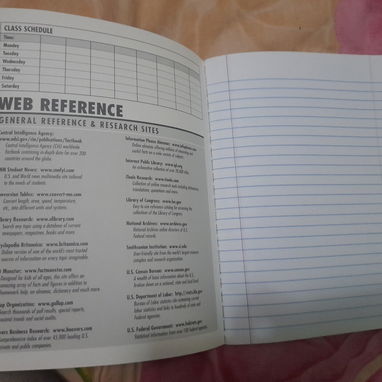 CLASS SCHEDULE
Time:
Monday
Tuesday
Wednesday
Thursday
Friday
Saturday
WEB REFERENCE
GENERAL REFERENCE & RESEARCH SITES
Central Intelligence Agency:
www.odci.gov/cia/publications/factbook
Central Intelligence Agency (CIA) worldwide
Factbook containing in-depth data for over 200
countries around the globe.
CNN Student News:
U.S. and World news multimedia site tailored
to the needs of students.
Conversion Tables: www.convert-me.com
Convert length, area, speed, temperature,
etc. into different units and systems.
eLibrary Research: www.elibrary.com
Search any topic using a database of current
newspapers, magazines, books and more
Encyclopedia Britannica: www.britannica.com
Online version of one of the world's most trusted
source of information on every topic imaginable.
Fact Monster: www.factmonster.com
Designed for kids of all ages, this site offers an
array of facts and figures in addition to
homework help, an almanac, dictionary and much more
Gallup Organization: www.gallup.com
Search thousands of poll results, special reports,
trends and audits.
Hoovers Business Research: www.hoovers.com
Comprehensive index of over 43,000 leading U.S.
private and public companies.
Information Please Almanac: www.infoplease.com
Online almanac offering millions of interesting and
useful facts on a wide variety of subjects.
Internet Public Library: www.ipl.org
An extensive collection of over 20,000 titles.
iTools Research: www.itools.com
Collection of online research tools including dictionaries,
translations, quotations and more.
Library of Congress: www.loc.gov
Easy to use reference catalog for accessing the
collections of the Library of Congress.
National Archives: www.archives.gov
National Archives online directory of U.S.
Federal records.
Smithsonian Institution: www.si.edu
User-friendly site from the world's largest museum
complex and research organization.
U.S. Census Bureau: www.census.gov
A wealth of data information about the U.S.
broken down on a national, state and local level.
U.S. Department of Labor: http://stats.bls.gov
Bureau of Labor statistics site containing current
labor statistics and links to hundreds of state and
federal agencies.
U.S. Federal Government: www.fedstats.gov
Published information from over 100 federal agencies.